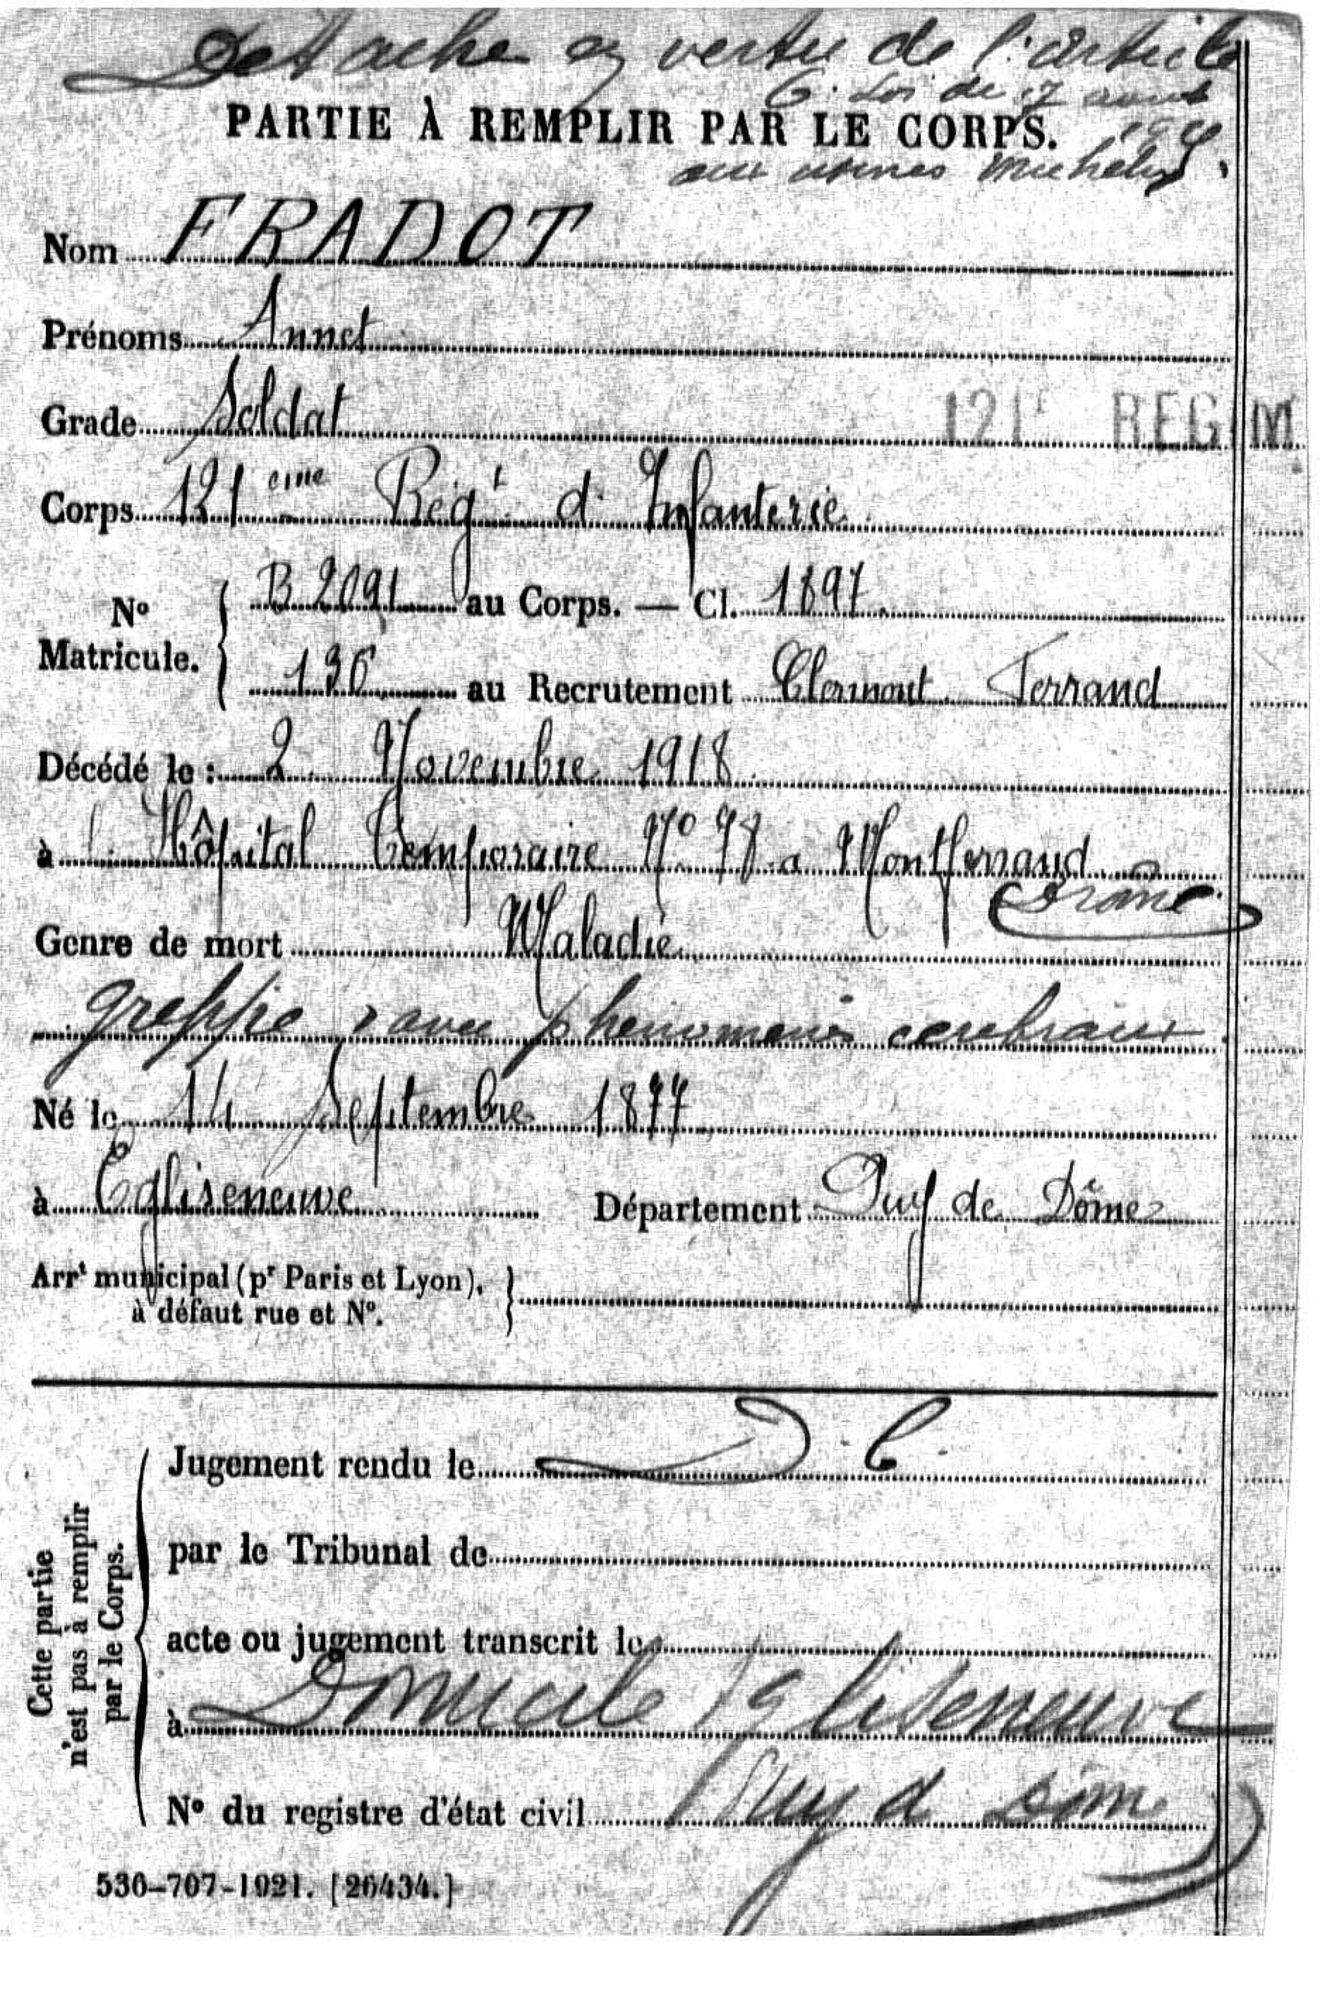 Detaché en vertu de l'article
6. Loi du 17 aout
PARTIE À REMPLIR PAR LE CORPS.
aux usines Michelin
Nom FRADOT
Prénoms Annet
Grade Soldat
121e REGIM
Corps 121eme Régt d'Infanterie
No Matricule. B 2091 au Corps. — Cl. 1897.
136 au Recrutement Clermont Ferrand
Décédé le : 2 Novembre 1918
à l'Hôpital Temporaire No 78 a Montferrand
Genre de mort Maladie
grippe avec phenomenes cerebraux
Né le 14 Septembre 1877
à Egliseneuve Département Puy de Dôme
Arrt municipal (pr Paris et Lyon),
à défaut rue et No.
Cette partie
n'est pas à remplir
par le Corps.
Jugement rendu le
par le Tribunal de
acte ou jugement transcrit le
à Domicile Egliseneuve
No du registre d'état civil Puy d Dome
530-707-1921. [26434.]